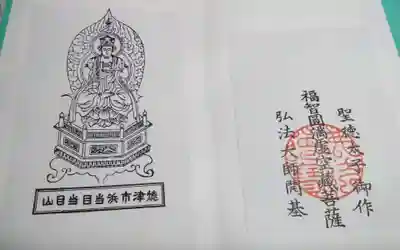 聖徳太子御作
福智圓満虚空蔵菩薩
弘法大師開基
山目当目当浜市津焼